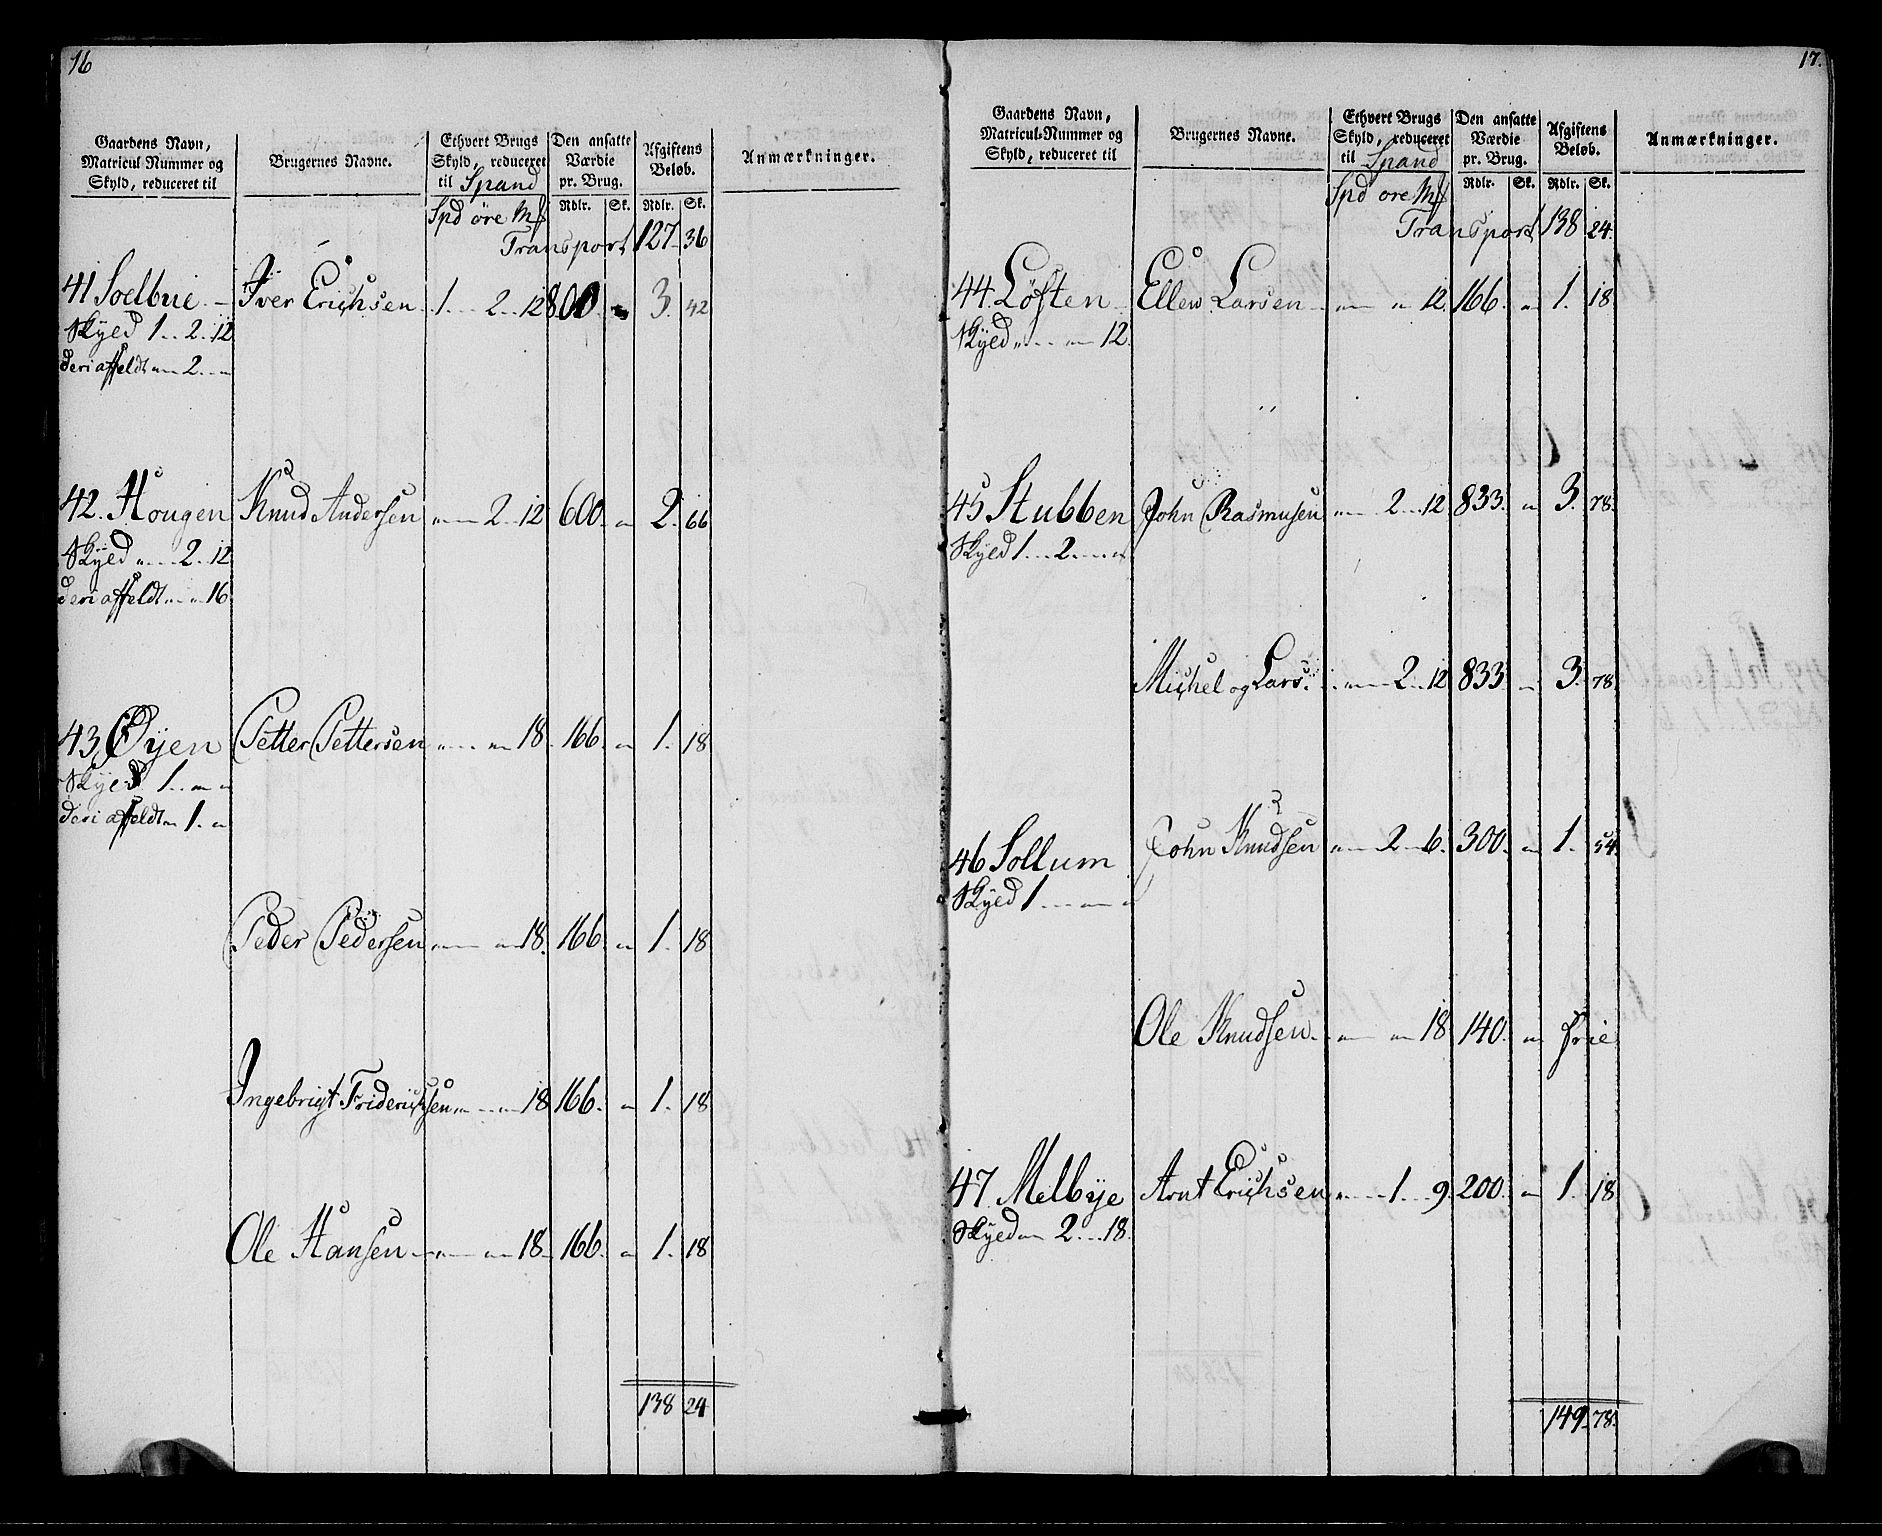 16
Gaardens Navn,
Matricul Nummer og
Skyld, reduceret til
Brugernes Navne.
Ethvert Brugs
Skyld, reduceret
til Spand
Den ansatte
Værdie
pr. Brug.
Afgiftens
Beløb.
Anmærkninger.
Spd øre Mſ
Rdlr. Sk. Rdlr. Sk.
Transport 127 36
41 Soelbue Iver Erichsen 1 2 12 800 " 3 42
Skyed 1 2 12
deri affeldt " 2 "
42. Hougen Knud Andersen " 2 12 600 " 2 66
Skyed " 2 12
deri affeldt " " 16
43 Øyen Petter Pettersen " " 18 166 " 1 18
Skyed 1 " "
deri affeldt " 1 "
Peder Pedersen " " 18 166 " 1 18
Ingebrigt Friderichsen " " 18 166 " 1 18
Ole Hansen " " 18 166 " 1 18
138 24
17.
Gaardens Navn,
Matricul-Nummer og
Skyld, reduceret til
Brugernes Navne.
Ethvert Brugs
Skyld, reduceret
til Spand
Den ansatte
Værdie
pr. Brug.
Afgiftens
Beløb.
Anmærkninger.
Spd øre Mſ
Rdlr. Sk. Rdlr. Sk.
Transport 138 24
44. Løften Ellew Larsen " " 12 166 " 1 18
Skyed " " 12
45 Stubben John Rasmusen " 2 12 833 " 3 78
Skyed 1 2 "
Michel og Lars " 2 12 833 " 3 78
46 Sollum John Knudsen " 2 6 300 " 1 54
Skyed 1 " "
Ole Knudsen " " 18 140 " frie
47 Melbye Arnt Erichsen " 1 9 200 " 1 18
Skyed " 2 18
149 78